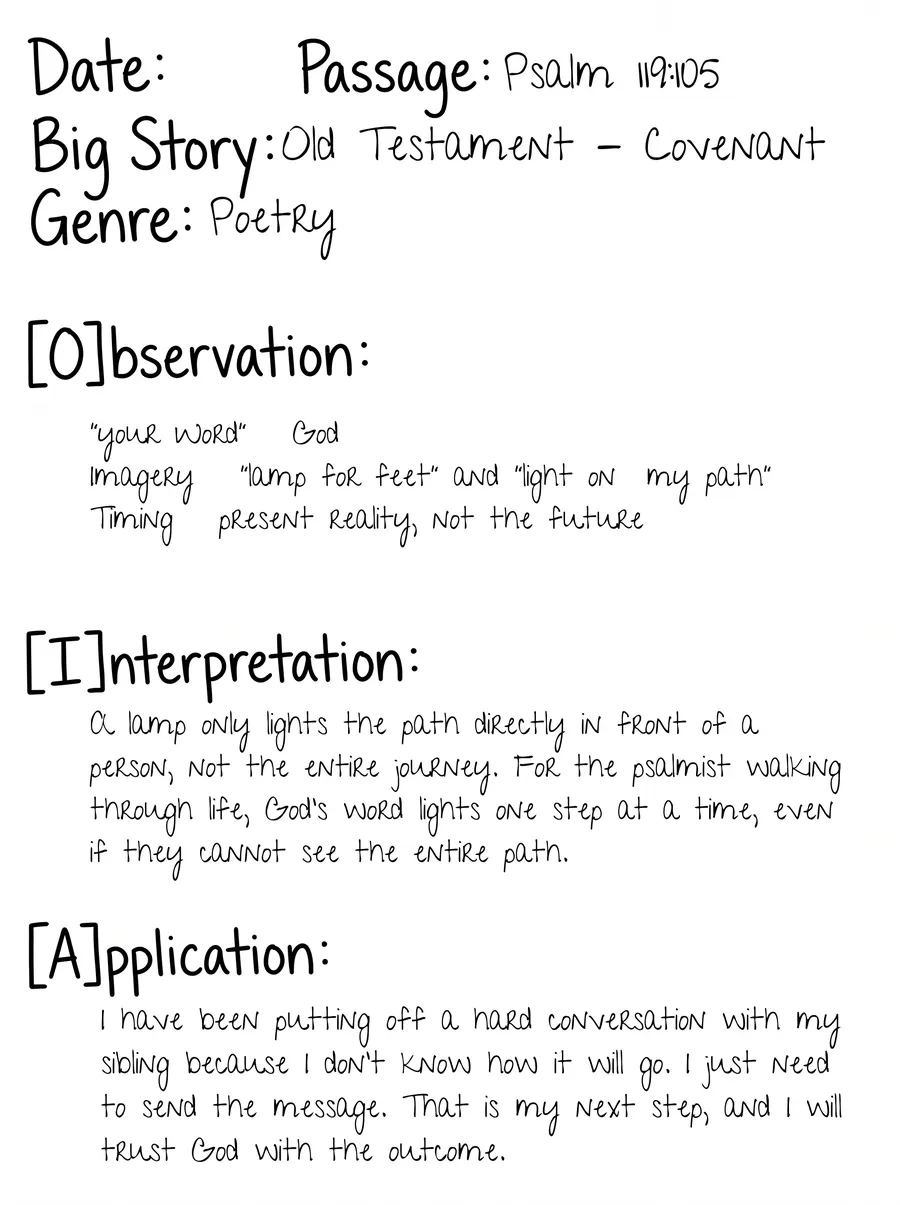 Date: Passage: Psalm 119:105
Big Story: Old Testament - Covenant
Genre: Poetry
[O]bservation:
"your word" God
Imagery "lamp for feet" and "light on my path"
Timing present reality, not the future
[I]nterpretation:
A lamp only lights the path directly in front of a
person, not the entire journey. For the psalmist walking
through life, God's word lights one step at a time, even
if they cannot see the entire path.
[A]pplication:
I have been putting off a hard conversation with my
sibling because I don't know how it will go. I just need
to send the message. That is my next step, and I will
trust God with the outcome.